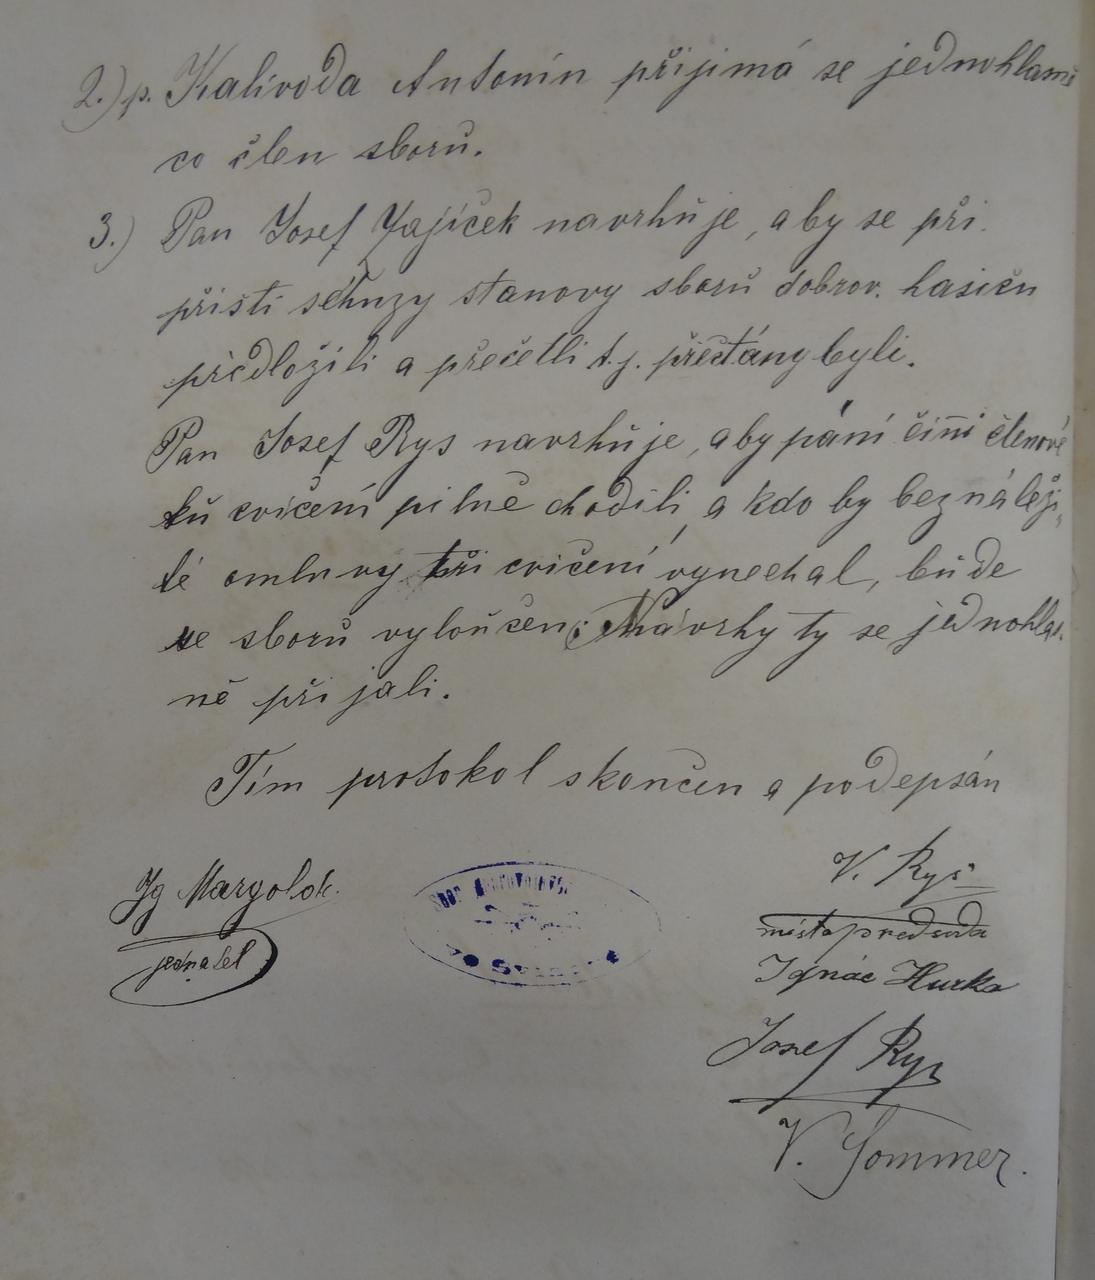 2.) p. Kalivoda Antonín přijimá se jednohlasně
co člen sborů.
3.) Pan Josef Zajíček navrhůje, aby se při
přísti schůzy stanovy sborů dobrov. hasičů
předložili a přečetli t.j. přečtány byli.
Pan Josef Rys navrhůje, aby pání činí členové
ků cvičení pilně chodili, a kdo by bez náleži„
té omluvy tři cvičení vynechal, bůde
se sborů vyloůčen; Návrhy ty se jednohlas„
ně přijali.
Tím protokol skončen a podepsán
Ig Margolok.
jednatel
Sbor dobrovolných
V. Ryš
místopředseda
Ignác Hurka
Josef Rys
V. Sommer.